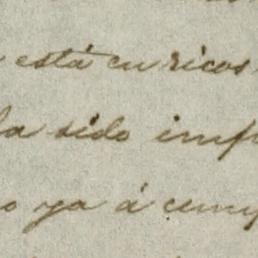 está en ricos
ha sido inf
o ya á cum